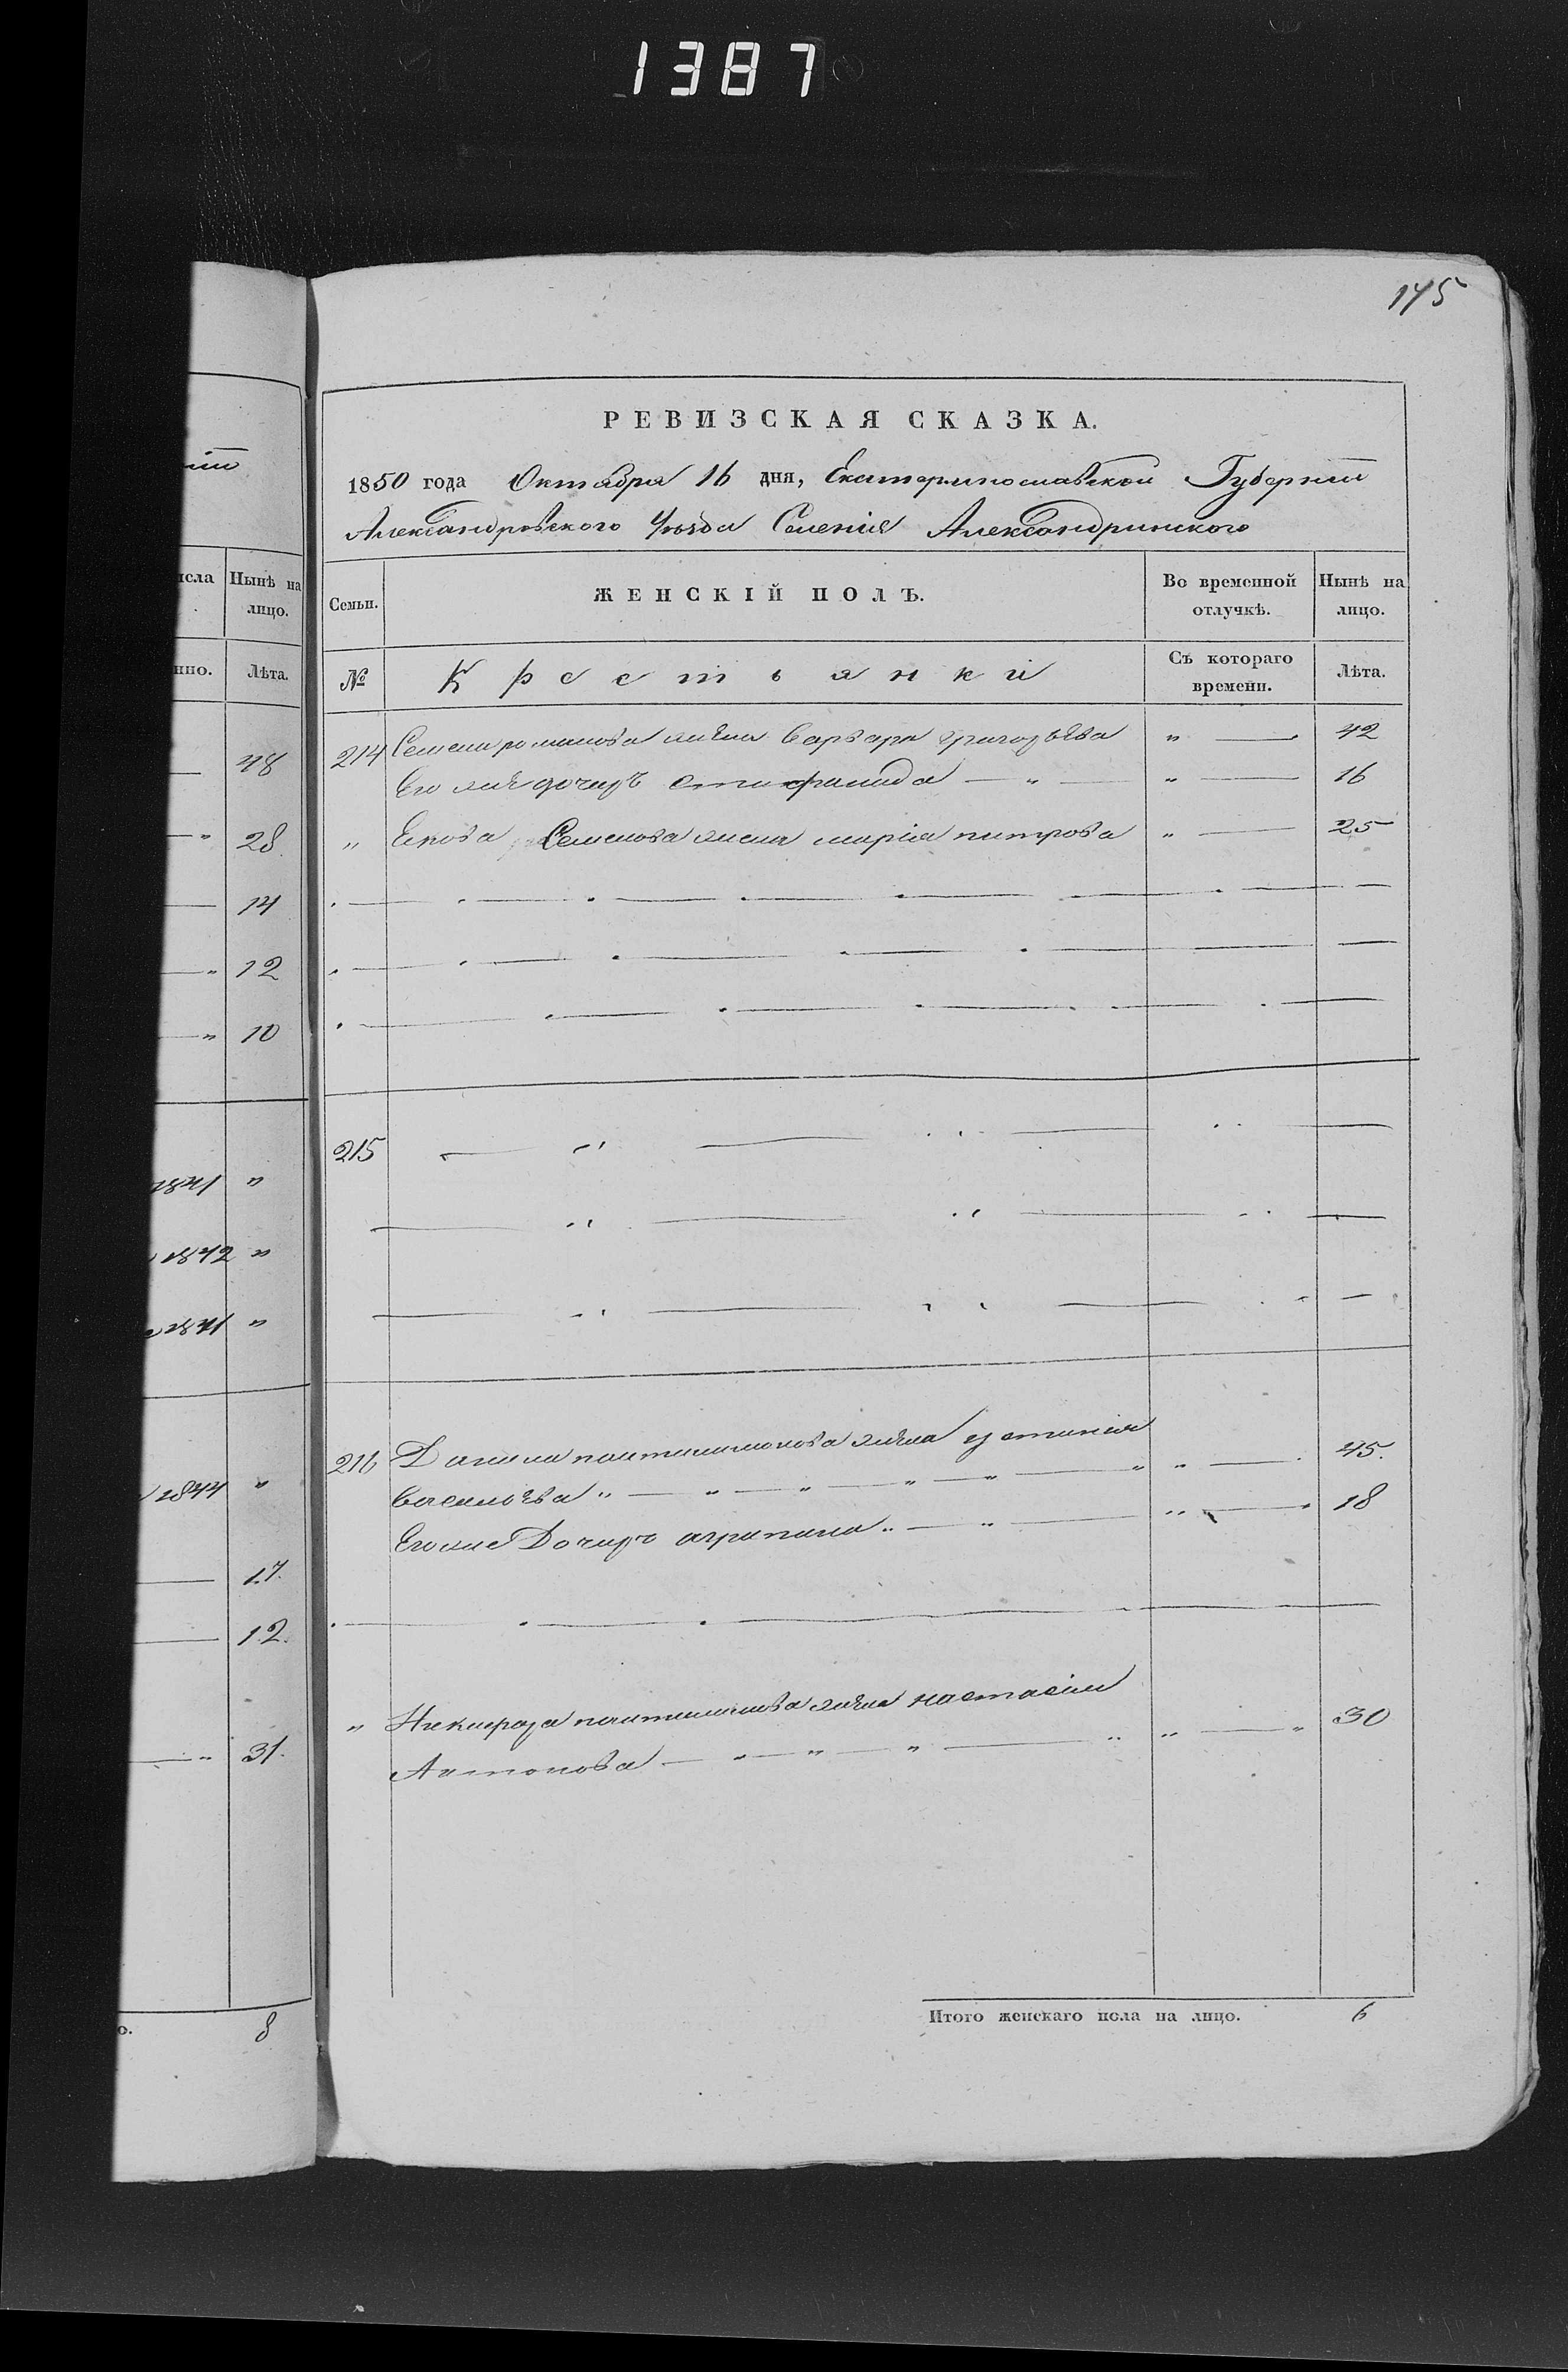 1387
145
РЕВИЗСКАЯ СКАЗКА.
1850 года Октября 16 дня, Екатеринославской Губернии
Александровского Уѣзда Селенія Александринского
Нынѣ на лицо.
Лѣта.
48
28
14
12
10
1841 "
1842 "
1841 "
1844 "
17.
12.
31.
8
Семьи. ЖЕНСКІЙ ПОЛЪ. Во временной отлучкѣ. Нынѣ на лицо.
№ Крестьянки Съ котораго времени. Лѣта.
214 Семена романова жена Варвара григорьева " — 42
Его же дочирь — " — " — 16
" Семенова жена марія питрова " — 25
215
216 Данила жена устинія
Васильева " — " — " — " — " — " " — 45.
Егоже Дочирь агрипина " — " — " — 18
" жена настасия
Антонова — " — " — " — " " — " 30
Итого женскаго пола на лицо. 6